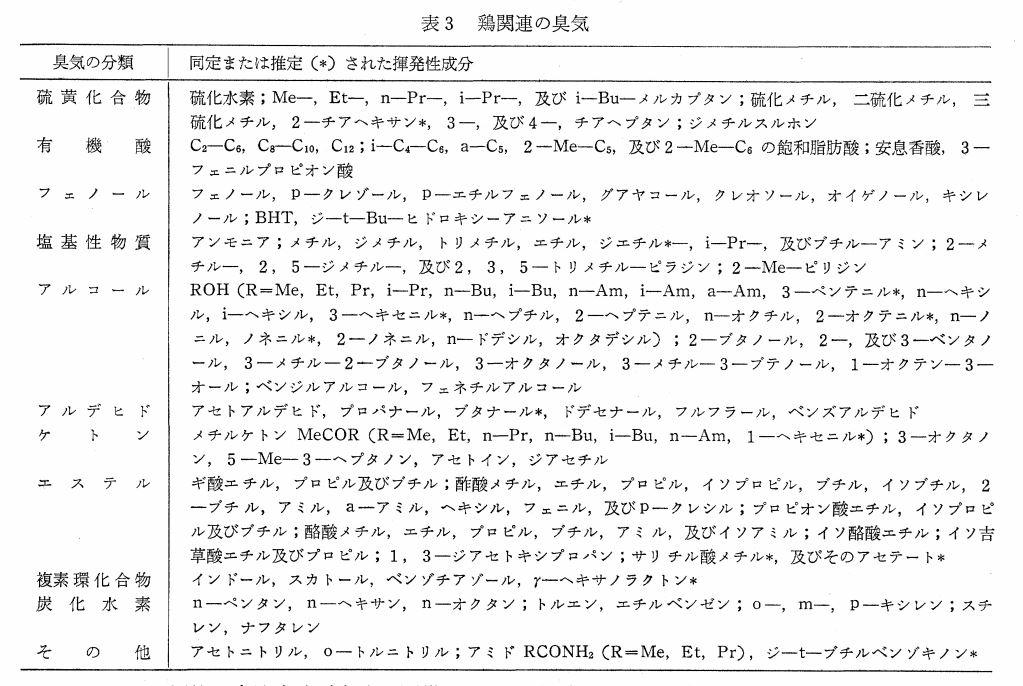 表3 鶏関連の臭気
臭気の分類 同定または推定(*)された揮発性成分
硫黄化合物 硫化水素;Me―, Et―, n―Pr―, i―Pr―, 及び i―Bu―メルカプタン;硫化メチル, 二硫化メチル, 三
硫化メチル, 2―チアヘキサン*, 3―, 及び4―, チアヘプタン;ジメチルスルホン
有機酸 C₂―C₆, C₈―C₁₀, C₁₂;i―C₄―C₆, a―C₅, 2―Me―C₅, 及び2―Me―C₆ の飽和脂肪酸;安息香酸, 3―
フェニルプロピオン酸
フェノール フェノール, p―クレゾール, p―エチルフェノール, グアヤコール, クレオソール, オイゲノール, キシレ
ノール;BHT, ジ―t―Bu―ヒドロキシーアニソール*
塩基性物質 アンモニア;メチル, ジメチル, トリメチル, エチル, ジエチル*―, i―Pr―, 及びブチル―アミン;2―メ
チル―, 2, 5―ジメチル―, 及び2, 3, 5―トリメチル―ピラジン;2―Me―ピリジン
アルコール ROH (R=Me, Et, Pr, i―Pr, n―Bu, i―Bu, n―Am, i―Am, a―Am, 3―ペンテニル*, n―ヘキシ
ル, i―ヘキシル, 3―ヘキセニル*, n―ヘプチル, 2―ヘプテニル, n―オクチル, 2―オクテニル*, n―ノ
ニル, ノネニル*, 2―ノネニル, n―ドデシル, オクタデシル);2―ブタノール, 2―, 及び3―ペンタノ
ール, 3―メチル―2―ブタノール, 3―オクタノール, 3―メチル―3―ブテノール, 1―オクテン―3―
オール;ベンジルアルコール, フェネチルアルコール
アルデヒド アセトアルデヒド, プロパナール, ブタナール*, ドデセナール, フルフラール, ベンズアルデヒド
ケトン メチルケトン MeCOR (R=Me, Et, n―Pr, n―Bu, i―Bu, n―Am, 1―ヘキセニル*);3―オクタノ
ン, 5―Me―3―ヘプタノン, アセトイン, ジアセチル
エステル ギ酸エチル, プロピル及びブチル;酢酸メチル, エチル, プロピル, イソプロピル, ブチル, イソブチル, 2
―ブチル, アミル, a―アミル, ヘキシル, フェニル, 及びp―クレシル;プロピオン酸エチル, イソプロピ
ル及びブチル;酪酸メチル, エチル, プロピル, ブチル, アミル, 及びイソアミル;イソ酪酸エチル;イソ吉
草酸エチル及びプロピル;1, 3―ジアセトキシプロパン;サリチル酸メチル*, 及びそのアセテート*
複素環化合物 インドール, スカトール, ベンゾチアゾール, γ―ヘキサノラクトン*
炭化水素 n―ペンタン, n―ヘキサン, n―オクタン;トルエン, エチルベンゼン;o―, m―, p―キシレン;スチ
レン, ナフタレン
その他 アセトニトリル, o―トルニトリル;アミド RCONH₂ (R=Me, Et, Pr), ジ―t―ブチルベンゾキノン*